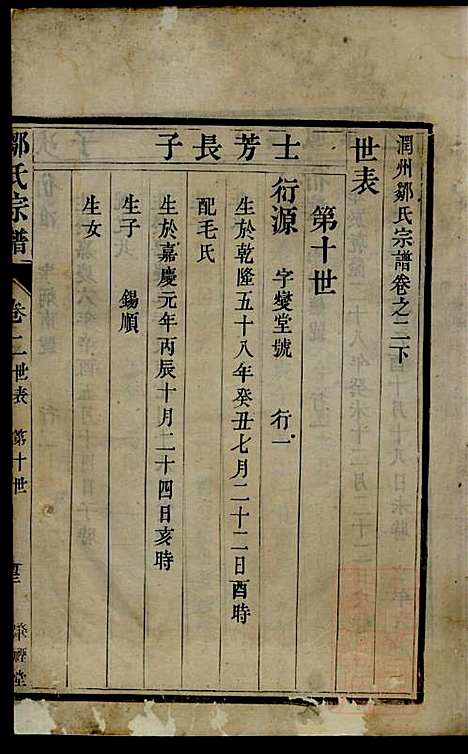 潤州鄒氏宗譜卷之二下
世表
第十世
士芳長子
衍源 字燮堂號 行一
生於乾隆五十八年癸丑七月二十二日酉時
配毛氏
生於嘉慶元年丙辰十月二十四日亥時
生子 錫順
生女
鄒氏宗譜 卷二世表 第十世